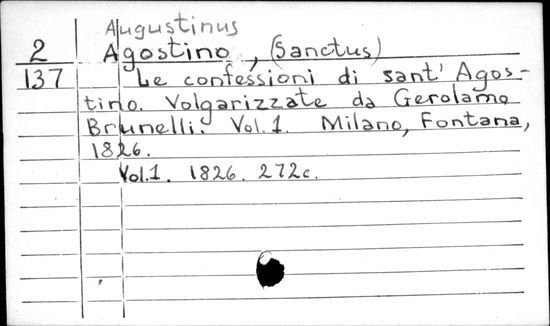 Augustinus
2 Agostino, (Sanctus)
137 Le confessioni di sant' Agos-
tino. Volgarizzate da Gerolamo
Brunelli. Vol.1. Milano, Fontana,
1826.
Vol.1. 1826. 272c.